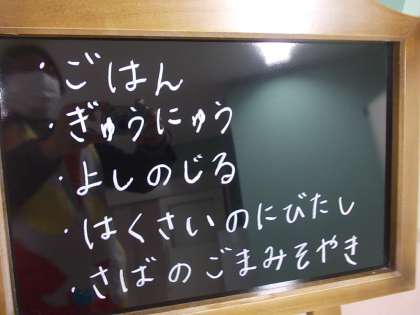 ・ごはん
・ぎゅうにゅう
・よしのじる
・はくさいのにびたし
・さばのごまみそやき